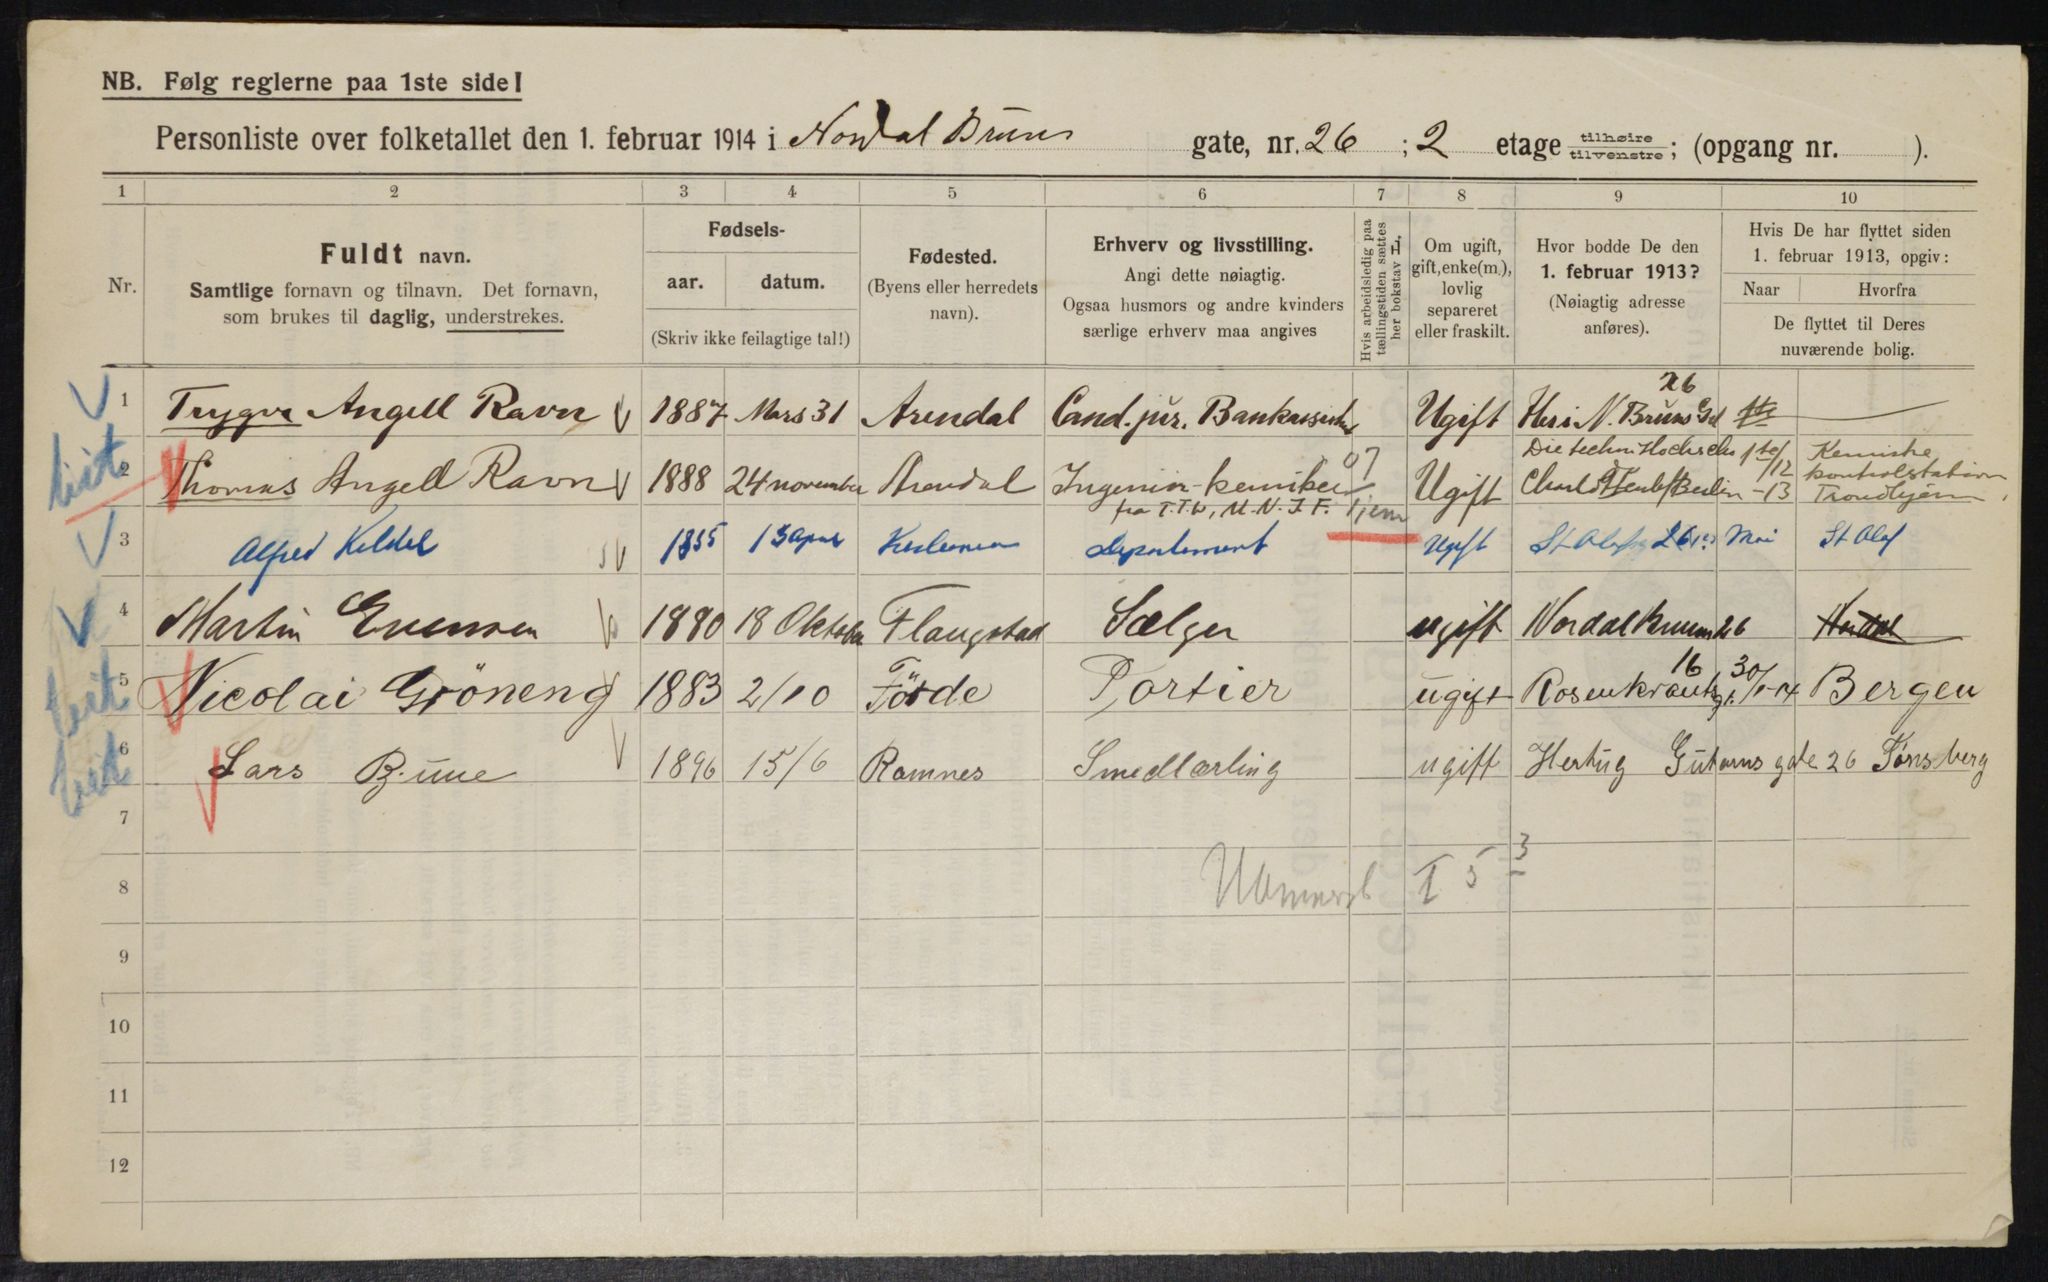 NB. Følg reglerne paa 1ste side!
Personliste over folketallet den 1. februar 1914 i Nordal Bruns gate, nr. 26 ; 2 etage tilhøire tilvenstre ; (opgang nr. ).
1 2 3 4 5 6 7 8 9 10
Nr.
Fuldt navn.
Samtlige fornavn og tilnavn. Det fornavn,
som brukes til daglig, understrekes.
Fødsels-
aar. datum.
(Skriv ikke feilagtige tal!)
Fødested.
(Byens eller herredets
navn).
Erhverv og livsstilling.
Angi dette nøiagtig.
Ogsaa husmors og andre kvinders
særlige erhverv maa angives
Hvis arbeidsledig paa
tællingstiden sættes
her bokstav L.
Om ugift,
gift, enke(m.),
lovlig
separeret
eller fraskilt.
Hvor bodde De den
1. februar 1913?
(Nøiagtig adresse
anføres).
Hvis De har flyttet siden
1. februar 1913, opgiv:
Naar Hvorfra
De flyttet til Deres
nuværende bolig.
1 Trygve Angell Ravn 1887 Mars 31 Arendal Cand. jur. Ugift N. Bruns 26
2 Thomas Angell Ravn 1888 24 november Arendal Ingeniør-kemiker Ugift Berlin 1ste/12 -13 Kemiske
kontrolstation
fra T.T.L, M.N.I.F. Trondhjem
3 Alfred Keldel 1855 13 April Departement Ugift St Olafsg 26 Mai St Olaf
4 Martin Evensen 1890 18 Oktober Flaugstad Sælger ugift Nordal Bruns 26
5 Nicolai Gröneng 1883 2/10 Förde Portier ugift Rosenkrantzg. 16 30/1-14 Bergen
6 Lars Bune 1896 15/6 Ramnes Smedlærling ugift Hertug Gutorms gate 26 Tønsberg
7
8 I 5 3
9
10
11
12